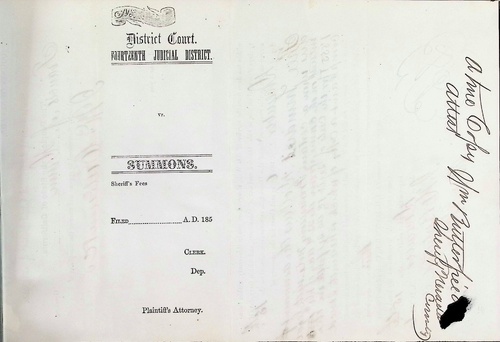 District Court.
FOURTEENTH JUDICIAL DISTRICT.
vs.
SUMMONS.
Sheriff's Fees
FILED A. D. 185
CLERK.
Dep.
Plaintiff's Attorney.
A true Copy
Attest
Wm Butterfield
Sheriff Nevada
County